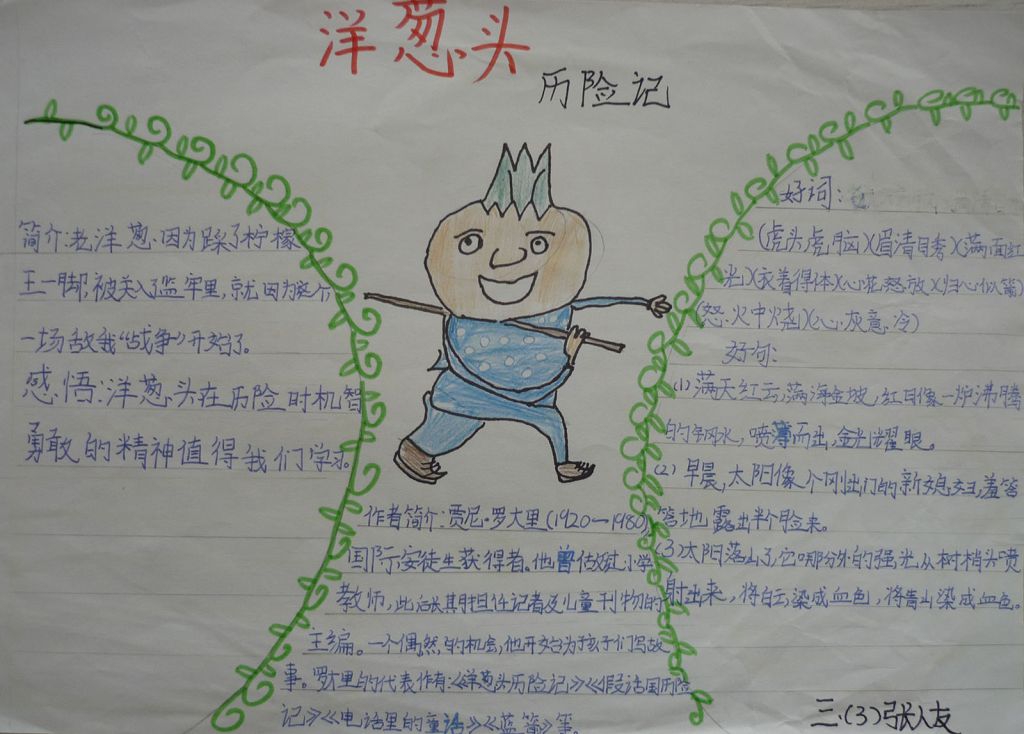 洋葱头
历险记
简介:老洋葱因为踩了柠檬
王一脚被关入了监牢里,就因为这个
一场敌我“战争”开始了。
感悟:洋葱头在历险时机智
勇敢的精神值得我们学习。
作者简介:贾尼·罗大里(1920—1980)
国际安徒生获得者。他曾做过小学
教师,此后长其时担任记者及儿童刊物的
主编。一个偶然的机会,他开始为孩子们写故
事。罗大里的代表作有:《洋葱头历险记》《假话国历险
记》《电话里的童话》《蓝箭》等。
好词:
(虎头虎脑)(眉清目秀)(满面红
光)(衣着得体)(心花怒放)(归心似箭)
(怒火中烧)(心灰意冷)
好句:
(1)满天红云,满海金坡,红日像一炉沸腾
的钢水,喷薄而出,金光耀眼。
(2)早晨,太阳像个刚出门的新媳妇,羞答
答地露出半个脸来。
(3)太阳落山了,它那分外的强光从树梢头喷
射出来,将白云染成血色,将青山染成血色。
三.(3)张人友